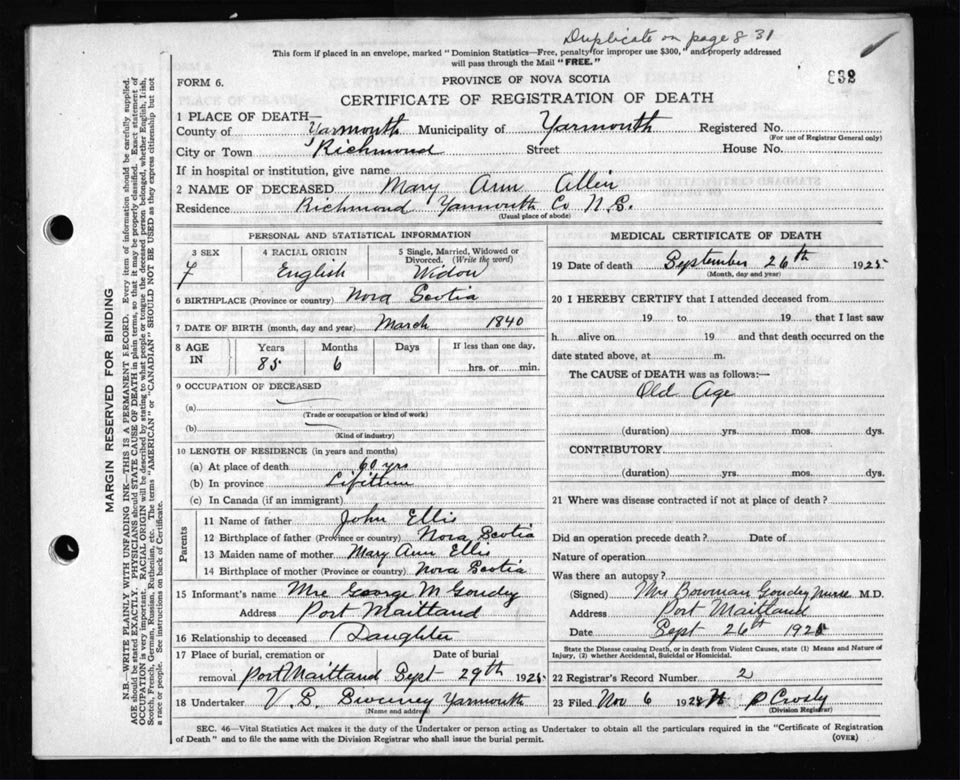 Duplicate on page 831
This form if placed in an envelope, marked "Dominion Statistics—Free, penalty for improper use $300," and properly addressed
will pass through the Mail "FREE."
832
FORM 6.
PROVINCE OF NOVA SCOTIA
CERTIFICATE OF REGISTRATION OF DEATH
1 PLACE OF DEATH—
County of Yarmouth Municipality of Yarmouth Registered No.
(For use of Registrar General only)
City or Town Richmond Street House No.
If in hospital or institution, give name
2 NAME OF DECEASED Mary Ann Allen
Residence Richmond Yarmouth Co N.S.
(Usual place of abode)
PERSONAL AND STATISTICAL INFORMATION
3 SEX 4 RACIAL ORIGIN 5 Single, Married, Widowed or
Divorced. (Write the word)
F English Widow
6 BIRTHPLACE (Province or country) Nova Scotia
7 DATE OF BIRTH (month, day and year) March 1840
8 AGE IN Years Months Days If less than one day,
85 6 hrs. or min.
9 OCCUPATION OF DECEASED
(a)
(Trade or occupation or kind of work)
(b)
(Kind of industry)
10 LENGTH OF RESIDENCE (in years and months)
(a) At place of death 60 yrs
(b) In province Lifetime
(c) In Canada (if an immigrant)
Parents
11 Name of father John Ellis
12 Birthplace of father (Province or country) Nova Scotia
13 Maiden name of mother Mary Ann Ellis
14 Birthplace of mother (Province or country) Nova Scotia
15 Informant's name Mrs George M Goudy
Address Port Maitland
16 Relationship to deceased Daughter
17 Place of burial, cremation or Date of burial
removal Port Maitland Sept 29th 1925
18 Undertaker V. S. Sweeney Yarmouth
(Name and address)
MEDICAL CERTIFICATE OF DEATH
19 Date of death September 26th 1925
(Month, day and year)
20 I HEREBY CERTIFY that I attended deceased from
19 to 19 that I last saw
h alive on 19 and that death occurred on the
date stated above, at m.
The CAUSE of DEATH was as follows:—
Old Age
(duration) yrs. mos. dys.
CONTRIBUTORY
(duration) yrs. mos. dys.
21 Where was disease contracted if not at place of death?
Did an operation precede death? Date of
Nature of operation
Was there an autopsy?
(Signed) Mrs Bowman Goudey Nurse M.D.
Address Port Maitland
Date Sept 26th 1925
State the Disease causing Death, or in death from Violent Causes, state (1) Means and Nature of
Injury, (2) whether Accidental, Suicidal or Homicidal.
22 Registrar's Record Number 2
23 Filed Nov 6 192 Crosby
(Division Registrar)
SEC. 46—Vital Statistics Act makes it the duty of the Undertaker or person acting as Undertaker to obtain all the particulars required in the "Certificate of Registration
of Death" and to file the same with the Division Registrar who shall issue the burial permit.
(OVER)
MARGIN RESERVED FOR BINDING
N.B.—WRITE PLAINLY WITH UNFADING INK—THIS IS A PERMANENT RECORD. Every item of information should be carefully supplied.
AGE should be stated EXACTLY. PHYSICIANS should STATE CAUSE OF DEATH in plain terms, so that it may be properly classified. Exact statement of
OCCUPATION is very important. RACIAL ORIGIN will be described by stating to what people or tongue the deceased person belonged, whether English, Irish,
Scotch, French, German, Russian, Ruthenian, etc. The terms "AMERICAN" or "CANADIAN" SHOULD NOT BE USED as they express citizenship but not
a race or people. See instructions on back of Certificate.